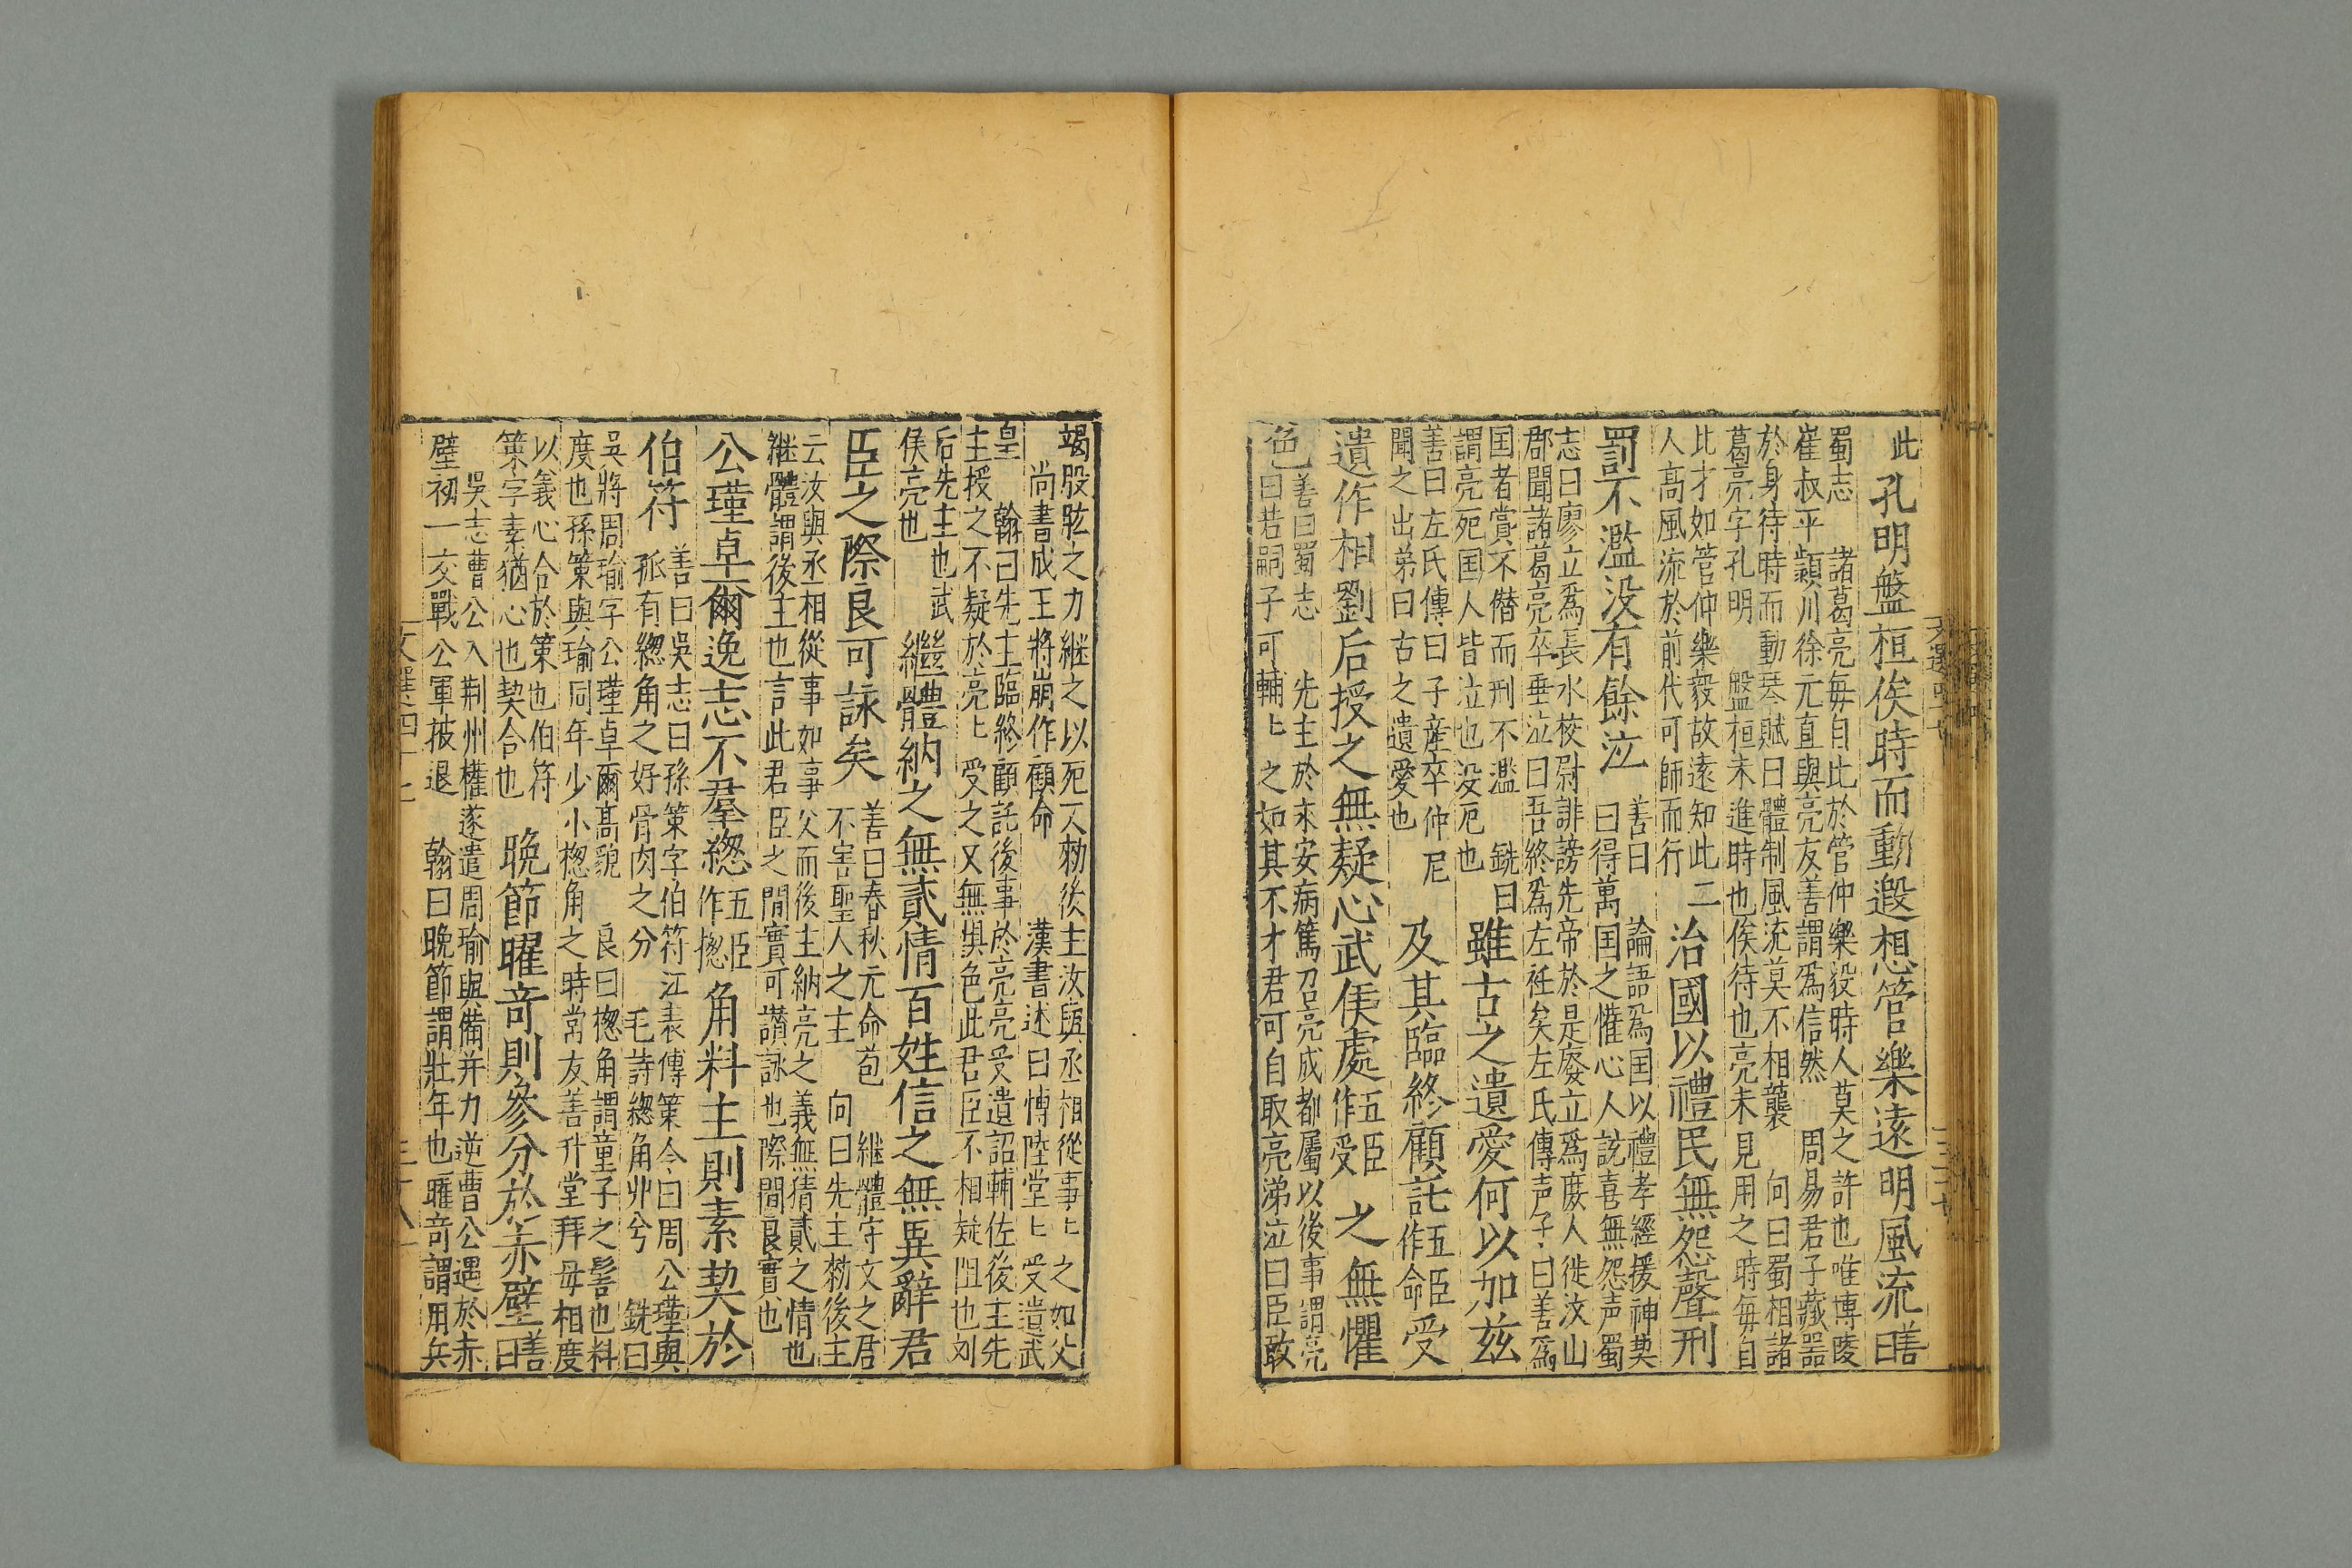 此孔明盤桓俟時而動遐想管樂遠明風流善曰
蜀志 諸葛亮每自比於管仲樂毅時人莫之許也唯博陵
崔叔平潁川徐元直與亮友善謂爲信然 周易君子藏器
於身待時而動琴賦曰體制風流莫不相襲 向曰蜀相諸
葛亮字孔明 盤桓未進時也俟待也亮未見用之時每自
比才如管仲樂毅故遠知此二
人高風流於前代可師而行
治國以禮民無怨聲刑
罰不濫没有餘泣
善曰 論語爲国以禮孝經援神契
曰得萬国之懽心人說喜無怨声蜀
志曰廖立爲長水校尉誹謗先帝於是廢立爲庶人徙汶山
郡聞諸葛亮卒垂泣曰吾終爲左衽矣左氏傳声子曰善爲
国者賞不僭而刑不濫 銑曰
謂亮死国人皆泣也没死也
雖古之遺愛何以加兹
善曰左氏傳曰子産卒仲尼
聞之出弟曰古之遺愛也
及其臨終顧託五臣作命受
遺作相劉后授之無疑心武侯處五臣作受之無懼
色
善曰蜀志 先主於永安病篤召亮成都屬以後事謂亮
曰若嗣子可輔〻之如其不才君可自取亮涕泣曰臣敢
竭股肱之力継之以死又勑後主汝與丞相從事〻之如父
尚書成王將崩作顧命 漢書述曰博陸堂〻受遺武
皇 翰曰先主臨終顧託後事於亮亮受遺詔輔佐後主先
主授之不疑於亮〻受之又無惧色此君臣不相疑阻也刘
后先主也武
侯亮也
繼體納之無貳情百姓信之無異辭君
臣之際良可詠矣
善曰春秋元命苞 継體守文之君
不害聖人之主 向曰先主勑後主
云汝與丞相從事如事父而後主納亮之義無猜貳之情也
継體謂後主也言此君臣之間實可讃詠也際間良實也
公瑾卓爾逸志不羣緫五臣作揔角料主則素契於
伯符
善曰吳志曰孫策字伯符江表傳策令曰周公瑾與
孤有緫角之好骨肉之分 毛詩緫角丱兮 銑曰
吳將周瑜字公瑾卓爾高貌 良曰揔角謂童子之髻也料
度也孫策與瑜同年少小揔角之時常友善升堂拜母相度
以義心合於策也伯符
策字素猶心也契合也
晚節曜竒則參分於赤壁善曰
吳志曹公入荆州權遂遣周瑜與備并力逆曹公遇於赤
壁初一交戰公軍披退 翰曰晚節謂壯年也曜竒謂用兵
文選四十七 三十八